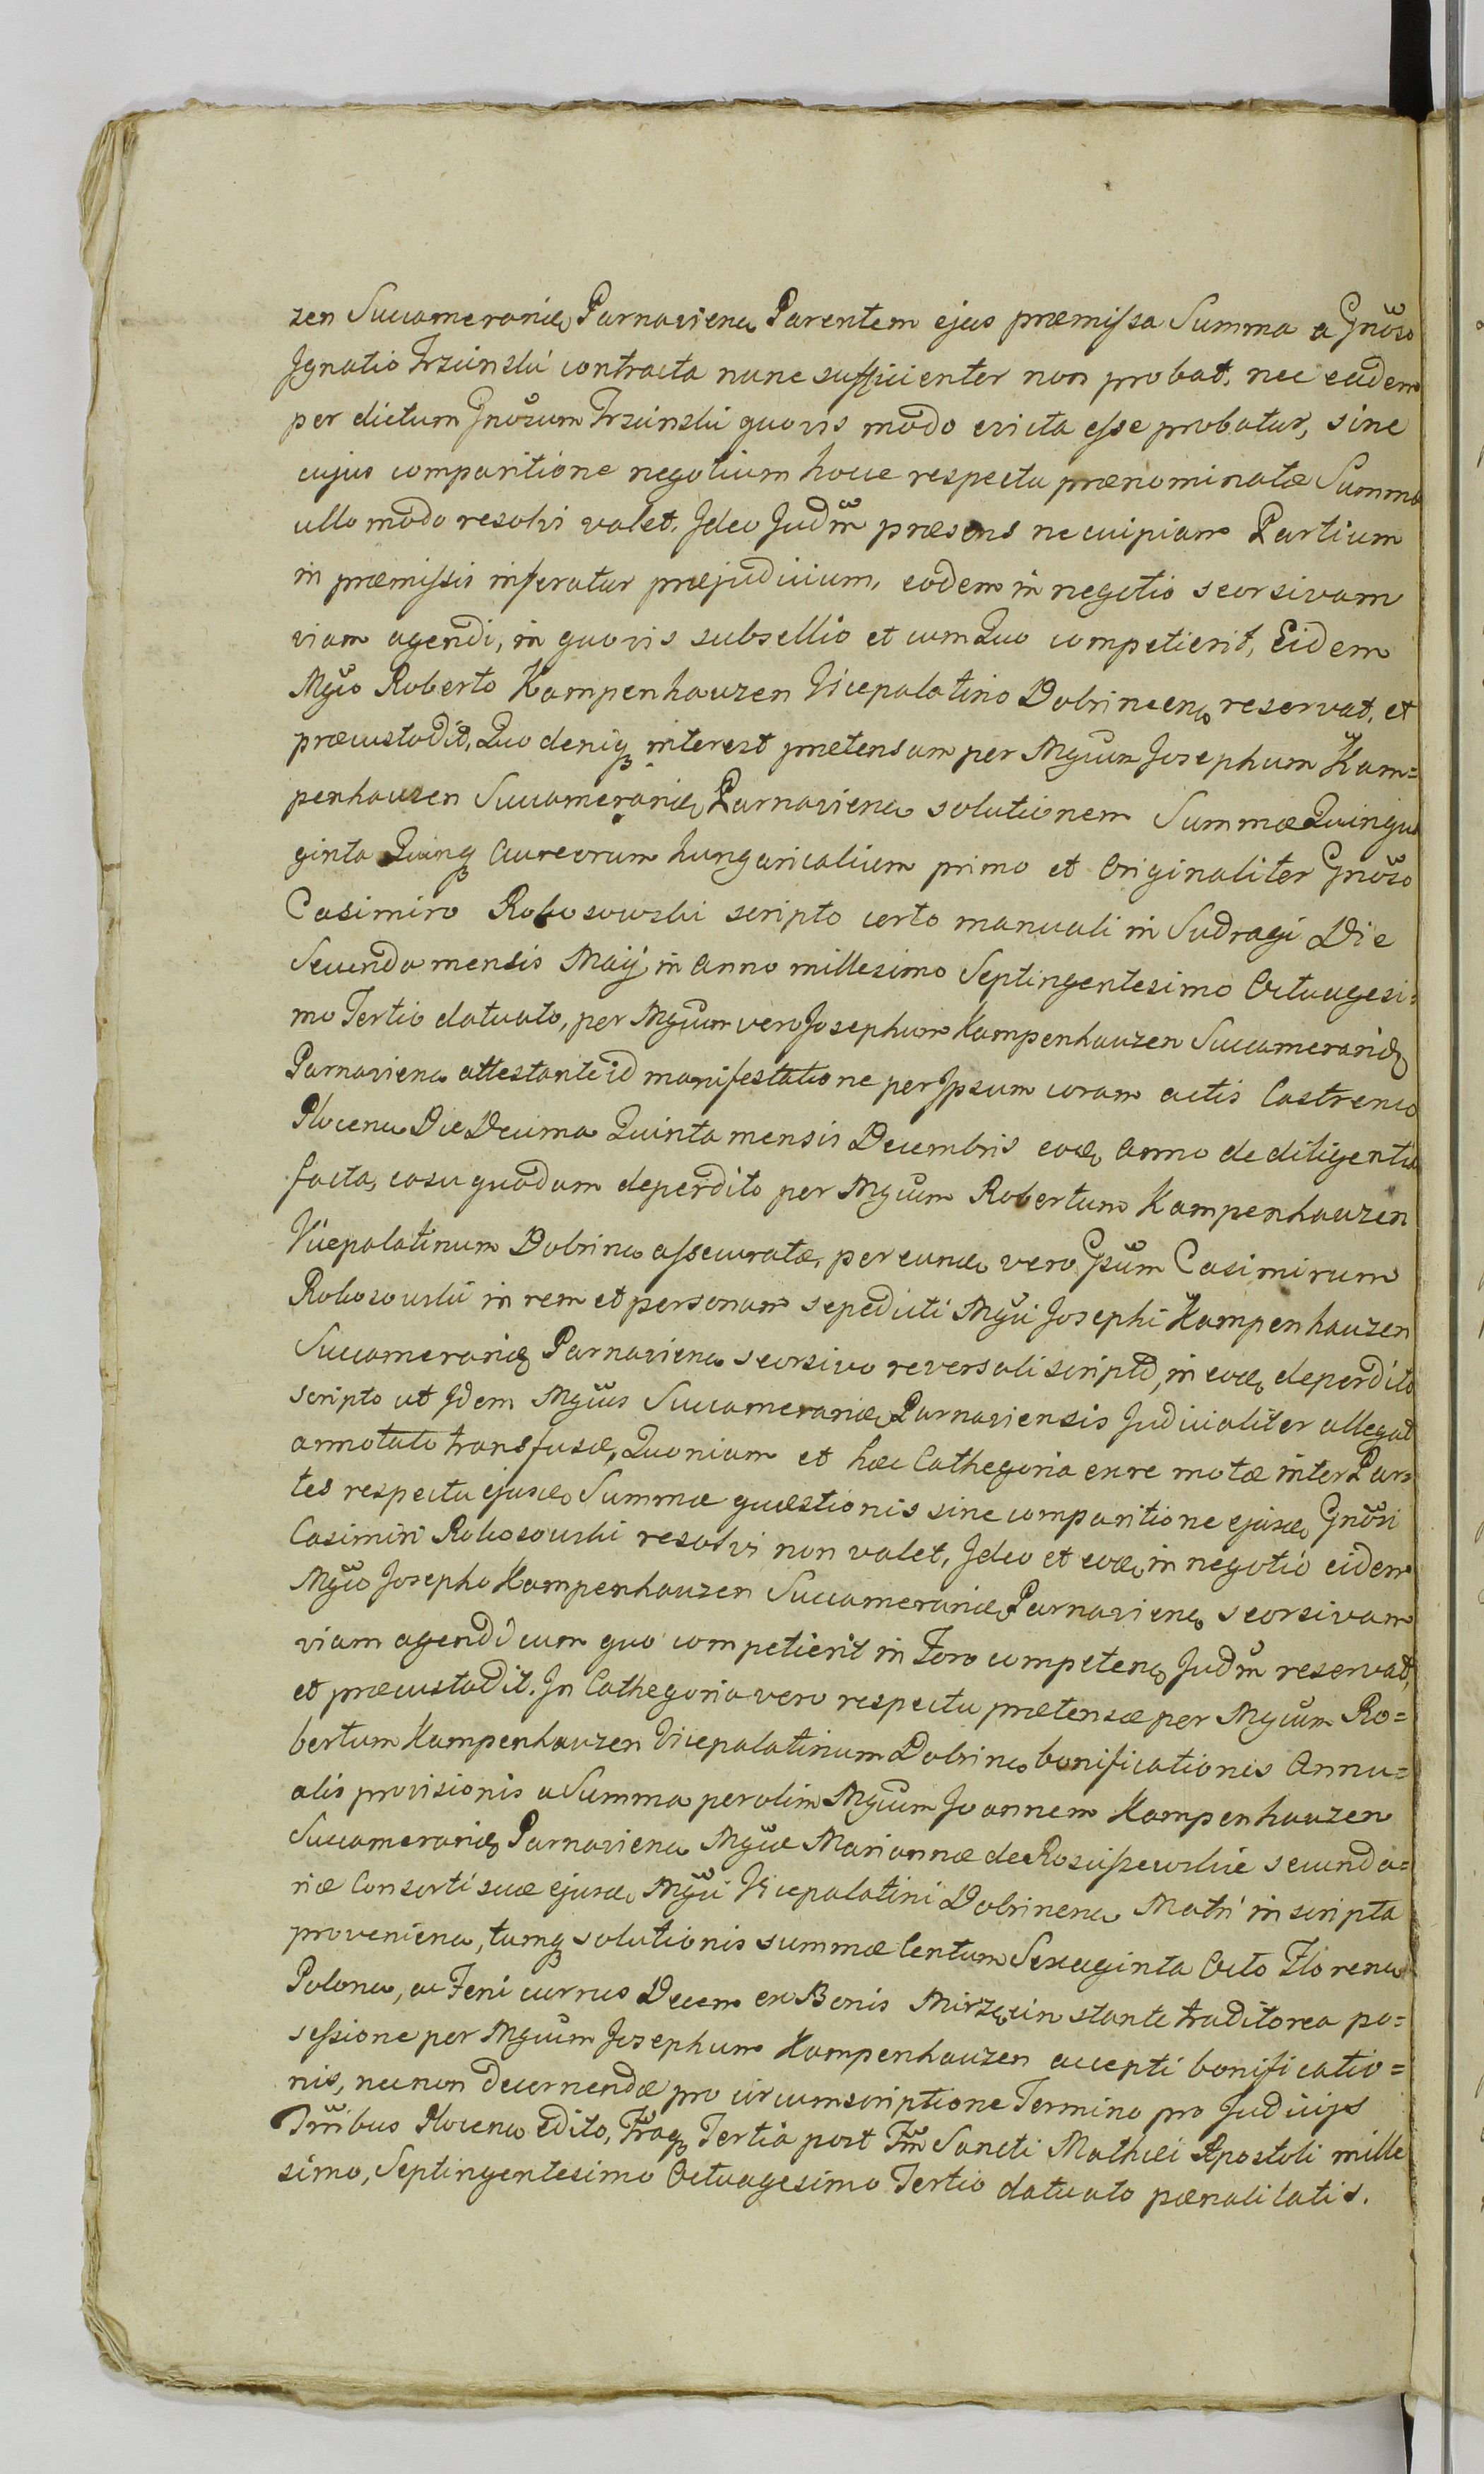 zen Succamerarid, Parnavien, Parentem ejus præmissa Summa a Gnoso
Ignatio Trzcinski contracta nunc sufficienter non probat, nec eadem
per dictum Gnosum Trzcinski quovis modo evicta esse probatur, sine
cujus comparitione negotium hocce respectu prænominatæ Summæ
ullo modo resolvi valet. Ideo Judm præsens ne cuipiam Partium
in præmissis inferatur præjudicium, eodem in negotio seorsivam
viam agendi, in quovis subsellio et cum Quo competierit, Eidem
Mgco Roberto Kampenhauzen Vicepalatino Dobrinen, reservat, et
præcustodit, Quo deniq interest prætensam per Mgcum Josephum Kam=
penhauzen Succamerarid, Parnavien, solutionem Summæ Quinqua
ginta Quinq Aureorum hungaricalium primo et Originaliter Gnoso
Casimiro Rokosowski scripto certo manuali in Sudragi Die
Secunda mensis Maij in Anno millesimo Septingentesimo Octuagesi=
mo Tertio datuato, per Mgcum vero Josephum Kampenhauzen Succamerarid,
Parnavien, attestante id manifestatione per Ipsum coram actis Castren,
Plocen, Die Decima Quinta mensis Decembris eod, Anno de diligentia
facta, casu quodam deperdito per Mgcum Robertum Kampenhauzen
Vicepalatinum Dobrin, assecuratæ, per eund, vero Gsum Casimirum
Rokosowski in rem et personam sepedicti Mgci Josephi Kampenhauzen
Succamerarid, Parnavien, seorsivo reversali scripto, in eod, deperdito
scripto ut Idem Mgcus Succamerarid, Parnaviensis Judicialiter allegat
annotato transfusæ, Quoniam et hæc Cathegoria ex re motæ inter Par=
tes respectu ejusd, Summæ quæstionis sine comparitione ejusd, Gnosi
Casimiri Rokosowski resolvi non valet, Ideo et eod, in negotio eidem
Mgco Josepho Kampenhauzen Succamerarid, Parnavien, seorsivam
viam agendi cum quo competierit in Foro competen, Judm reservat,
et præcustodit. In Cathegoria vero respectu prætensæ per Mgcum Ro=
bertum Kampenhauzen Vicepalatinum Dobrin, bonificationis Annu=
alis provisionis a Summa per olim Mgcum Joannem Kampenhauzen
Succamerarid, Parnavien, Mgcæ Mariannæ de Rosciszewskie secunda=
riæ Consorti suæ ejusd, Mgci Vicepalatini Dobrinen, Matri inscripta
provenien, tumq solutionis summæ Centum Sexaginta Octo Floren,
Polon, ac Feni currus Decem ex Bonis Mirzęcin stante traditorea po=
sessione per Mgcum Josephum Kampenhauzen accepti bonificatio=
nis, necnon decernendæ pro circumscriptione Termino pro Judicijs
Trribus Plocen, Edito, Fraq, Tertia post Fm Sancti Mathæi Apostoli mille
simo, Septingentesimo Octuagesimo Tertio datuato pænalitatis.